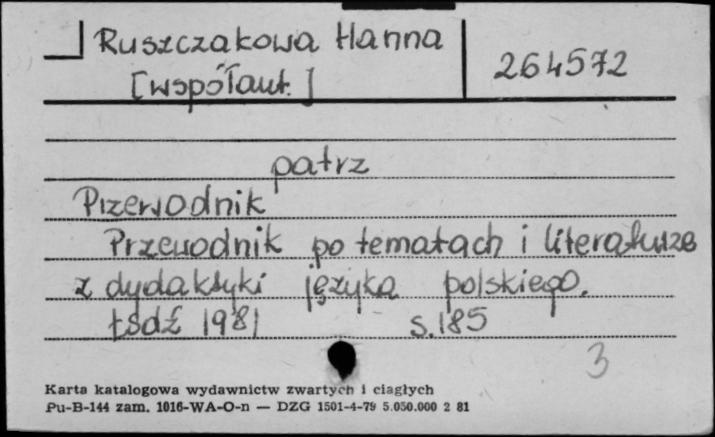 Ruszczakowa Hanna
[współaut.]
264572
patrz
Przewodnik
Przewodnik po tematach i literaturze
z dydaktyki języka polskiego.
Łódź 1981 s. 185
3
Karta katalogowa wydawnictw zwartych i ciągłych
Pu-B-144 zam. 1016-WA-O-n — DZG 1501-4-79 5.050.000 2 81